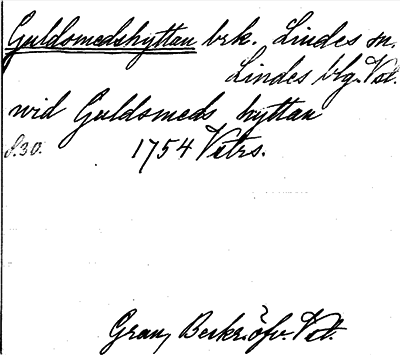 Guldsmedshyttan brk. Lindes sn.
Lindes blg. Vsl.
wid Guldsmeds hyttan
S.30. 1754 Vetrs.
Grau, Beskr. öfv. Vsl.